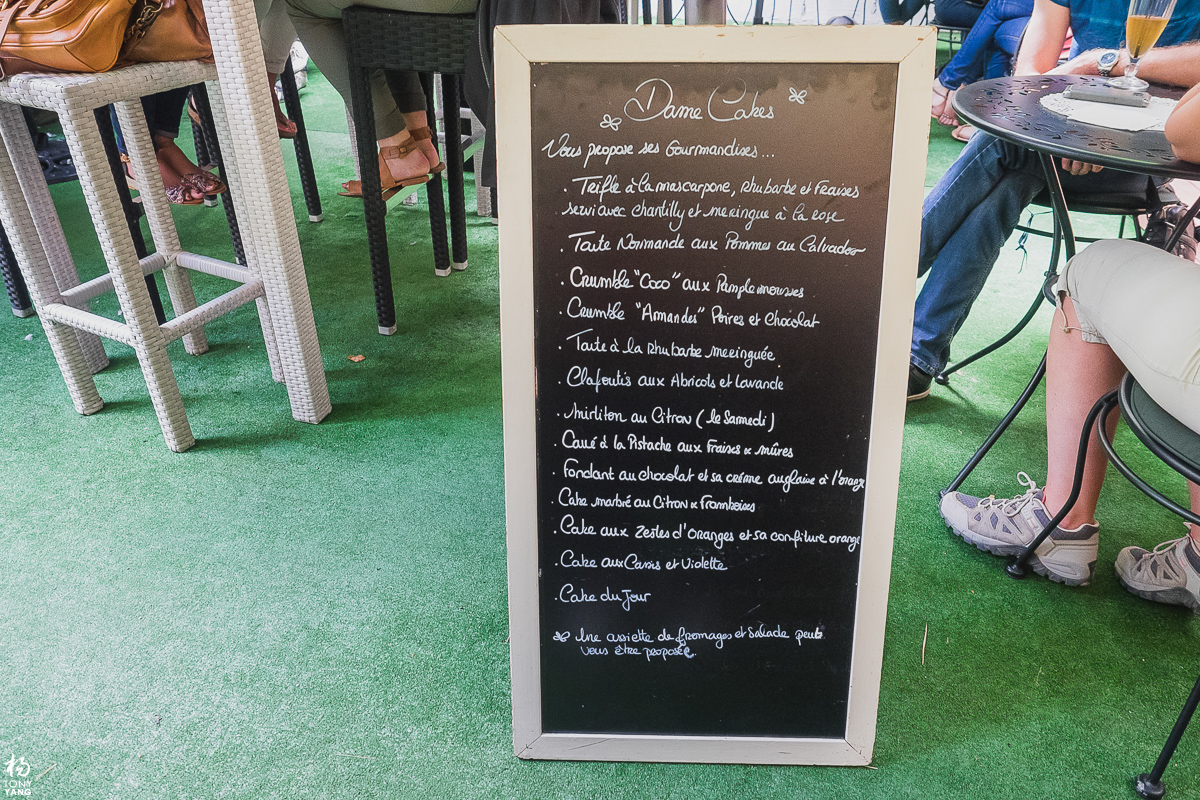 Dame Cakes
Vous propose ses Gourmandises...
. Trifle à la mascarpone, rhubarbe et Fraises
servi avec chantilly et meringue à la rose
. Tarte Normande aux Pommes au Calvados
. Crumble "Coco" aux Pamplemousses
. Crumble "Amandes" Poires et Chocolat
. Tarte à la Rhubarbe meringuée
. Clafoutis aux Abricots et Lavande
. Mirliton au Citron (le Samedi)
. Carré à la Pistache aux Fraises & mûres
. Fondant au chocolat et sa crème anglaise à l'orange
. Cake marbré au Citron & Framboises
. Cake aux zestes d'Oranges et sa confiture orange
. Cake aux Cassis et Violette
. Cake du Jour
Une assiette de fromages et Salade peut
vous être proposée.
杨
TONY
YANG